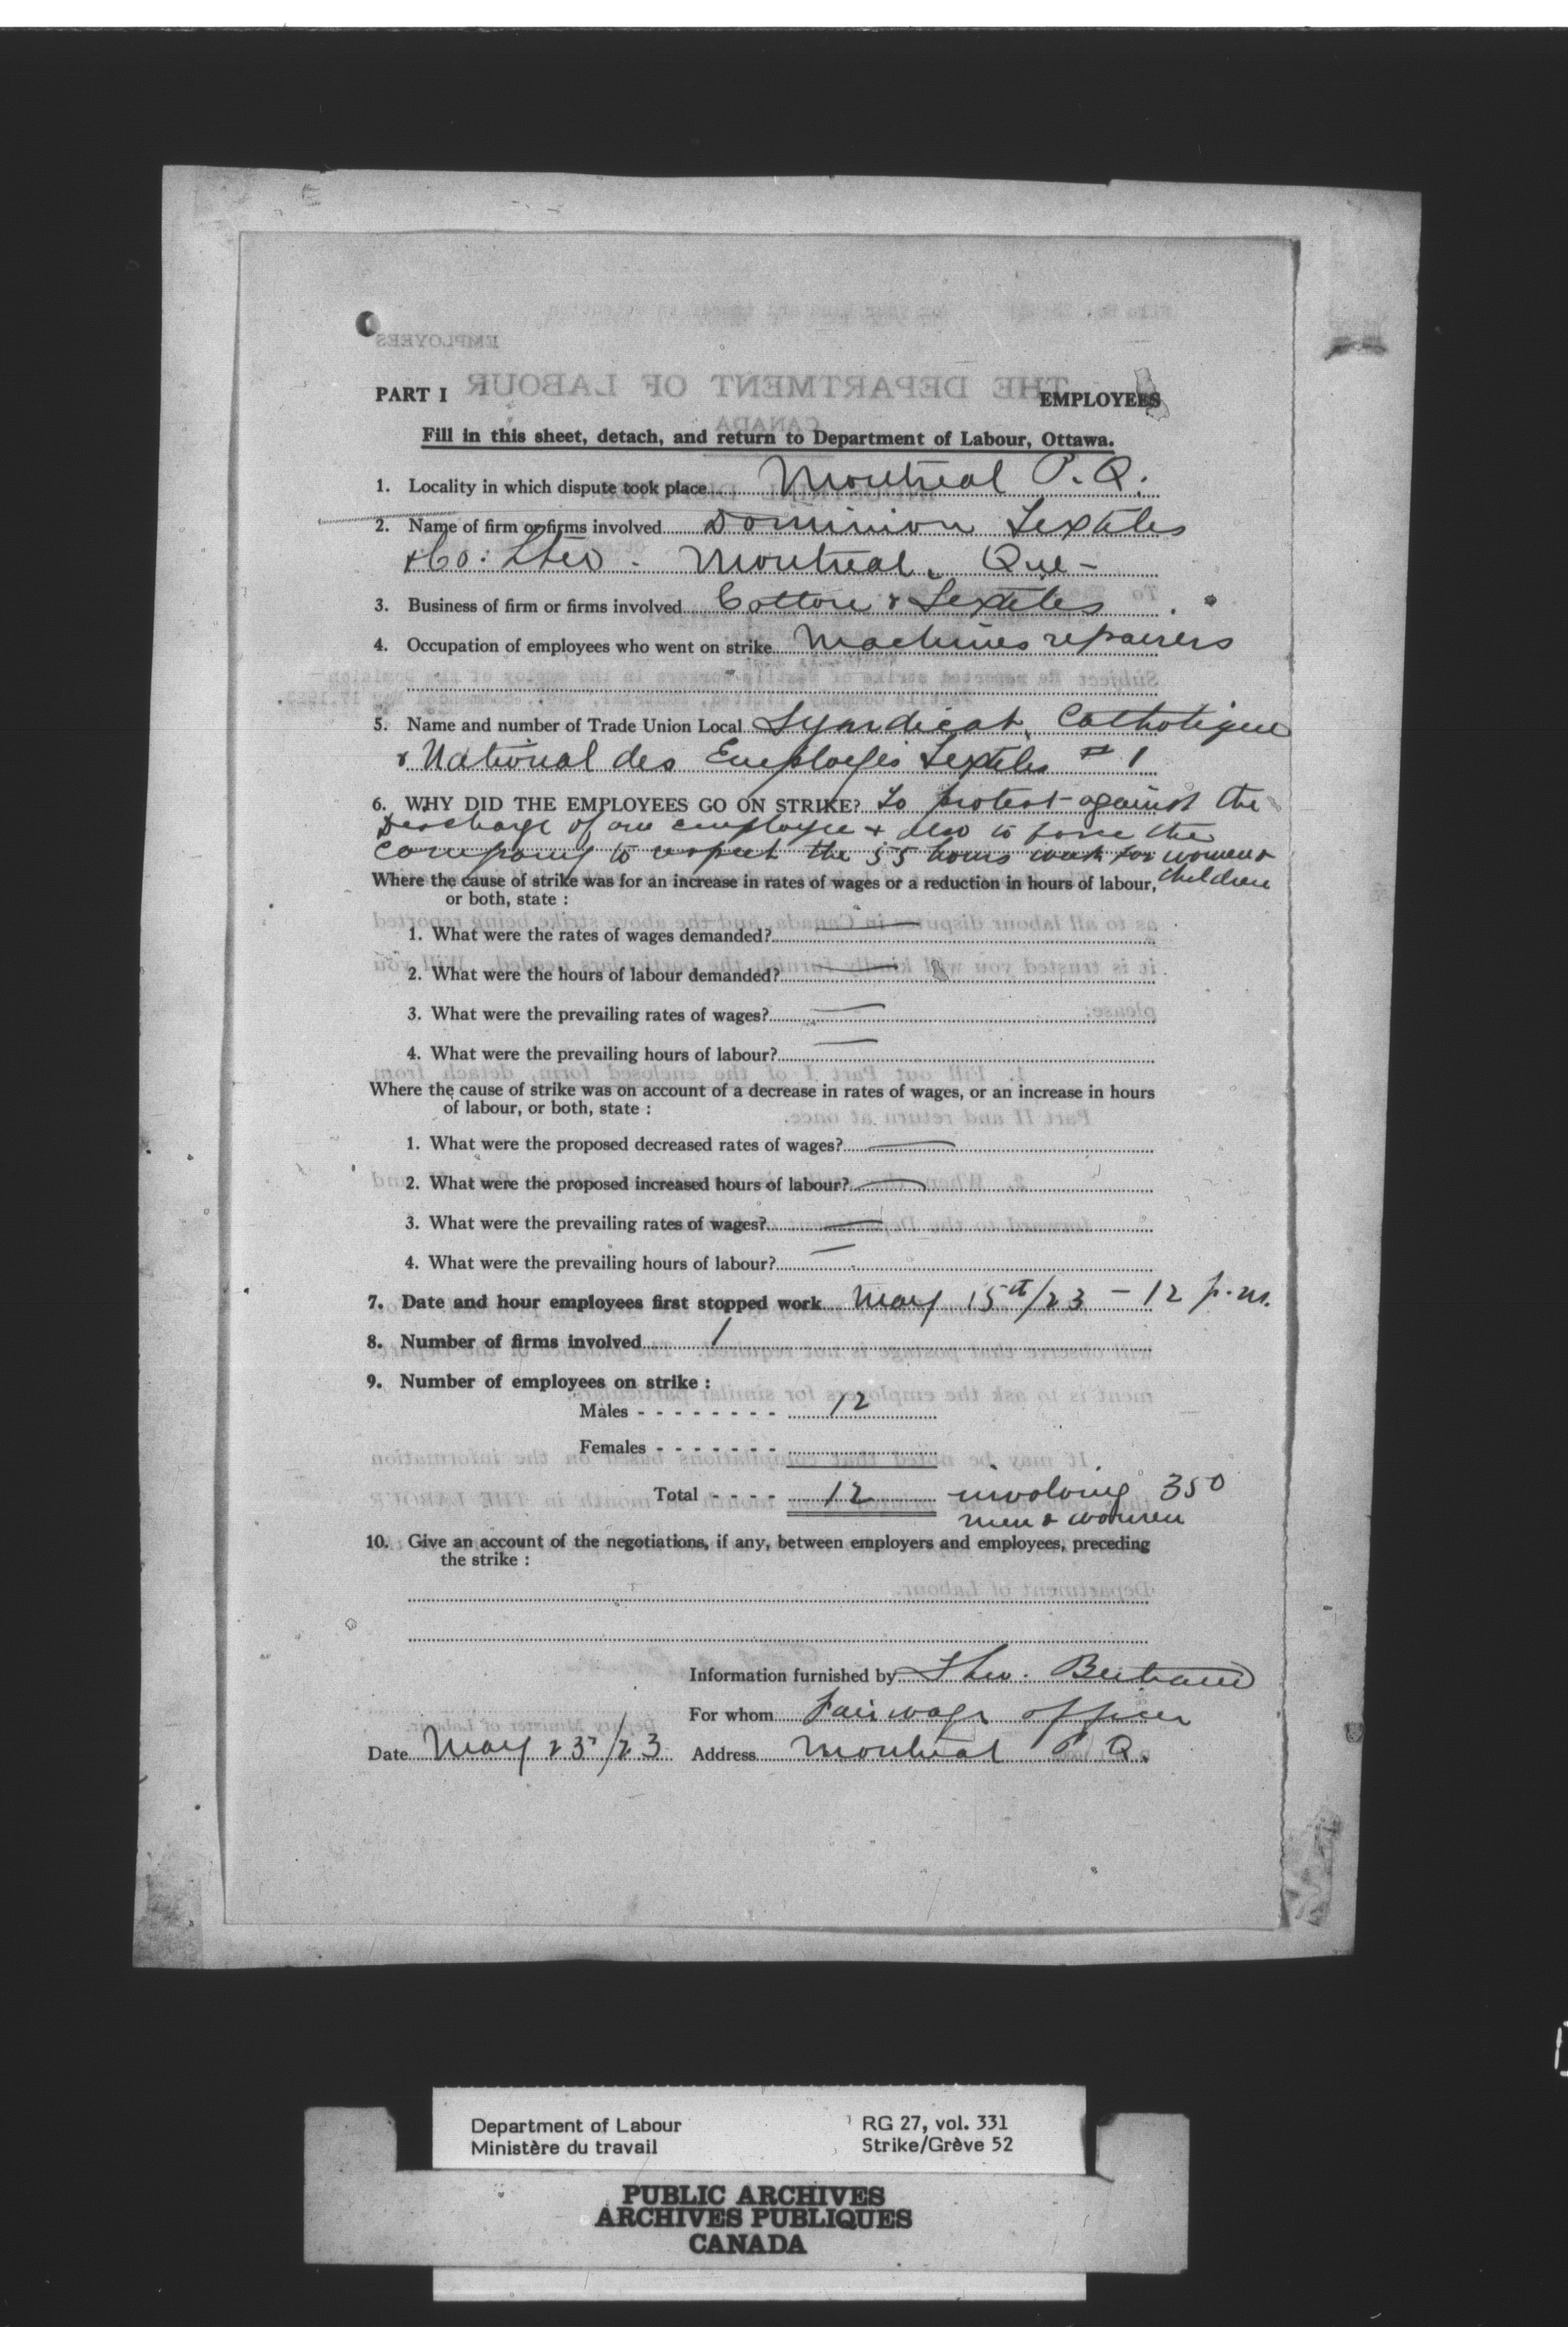 PART I
EMPLOYEES
Fill in this sheet, detach, and return to Department of Labour, Ottawa.
1. Locality in which dispute took place Montreal P.Q.
2. Name of firm or firms involved Dominion Textiles
& Co: Lted. Montreal. Que-
3. Business of firm or firms involved Cotton & Textiles
4. Occupation of employees who went on strike Machines repairers
5. Name and number of Trade Union Local Syndicat Catholique
& National des Employés Textiles # 1
6. WHY DID THE EMPLOYEES GO ON STRIKE? To protest against the
Discharge of one employee & also to force the
company to respect the 55 hours week for women &
children
Where the cause of strike was for an increase in rates of wages or a reduction in hours of labour,
or both, state :
1. What were the rates of wages demanded? —
2. What were the hours of labour demanded? —
3. What were the prevailing rates of wages? —
4. What were the prevailing hours of labour? —
Where the cause of strike was on account of a decrease in rates of wages, or an increase in hours
of labour, or both, state :
1. What were the proposed decreased rates of wages? —
2. What were the proposed increased hours of labour? —
3. What were the prevailing rates of wages? —
4. What were the prevailing hours of labour? —
7. Date and hour employees first stopped work May 15th/23 - 12 p.m.
8. Number of firms involved 1
9. Number of employees on strike :
Males - - - - - - - - 12
Females - - - - - - -
Total - - - - 12 involving 350
men & women
10. Give an account of the negotiations, if any, between employers and employees, preceding
the strike :
Information furnished by Theo. Bertrand
For whom Fair wage officer
Date May 23/23 Address Montreal P.Q.
Department of Labour RG 27, vol. 331
Ministère du travail Strike/Grève 52
PUBLIC ARCHIVES
ARCHIVES PUBLIQUES
CANADA